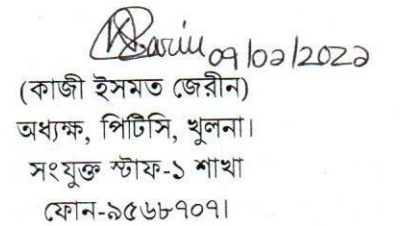 ০৭/০২/২০২২
(কাজী ইসমত জেরীন)
অধ্যক্ষ, পিটিসি, খুলনা।
সংযুক্ত স্টাফ-১ শাখা
ফোন-৯৫৬৮৭০৭।